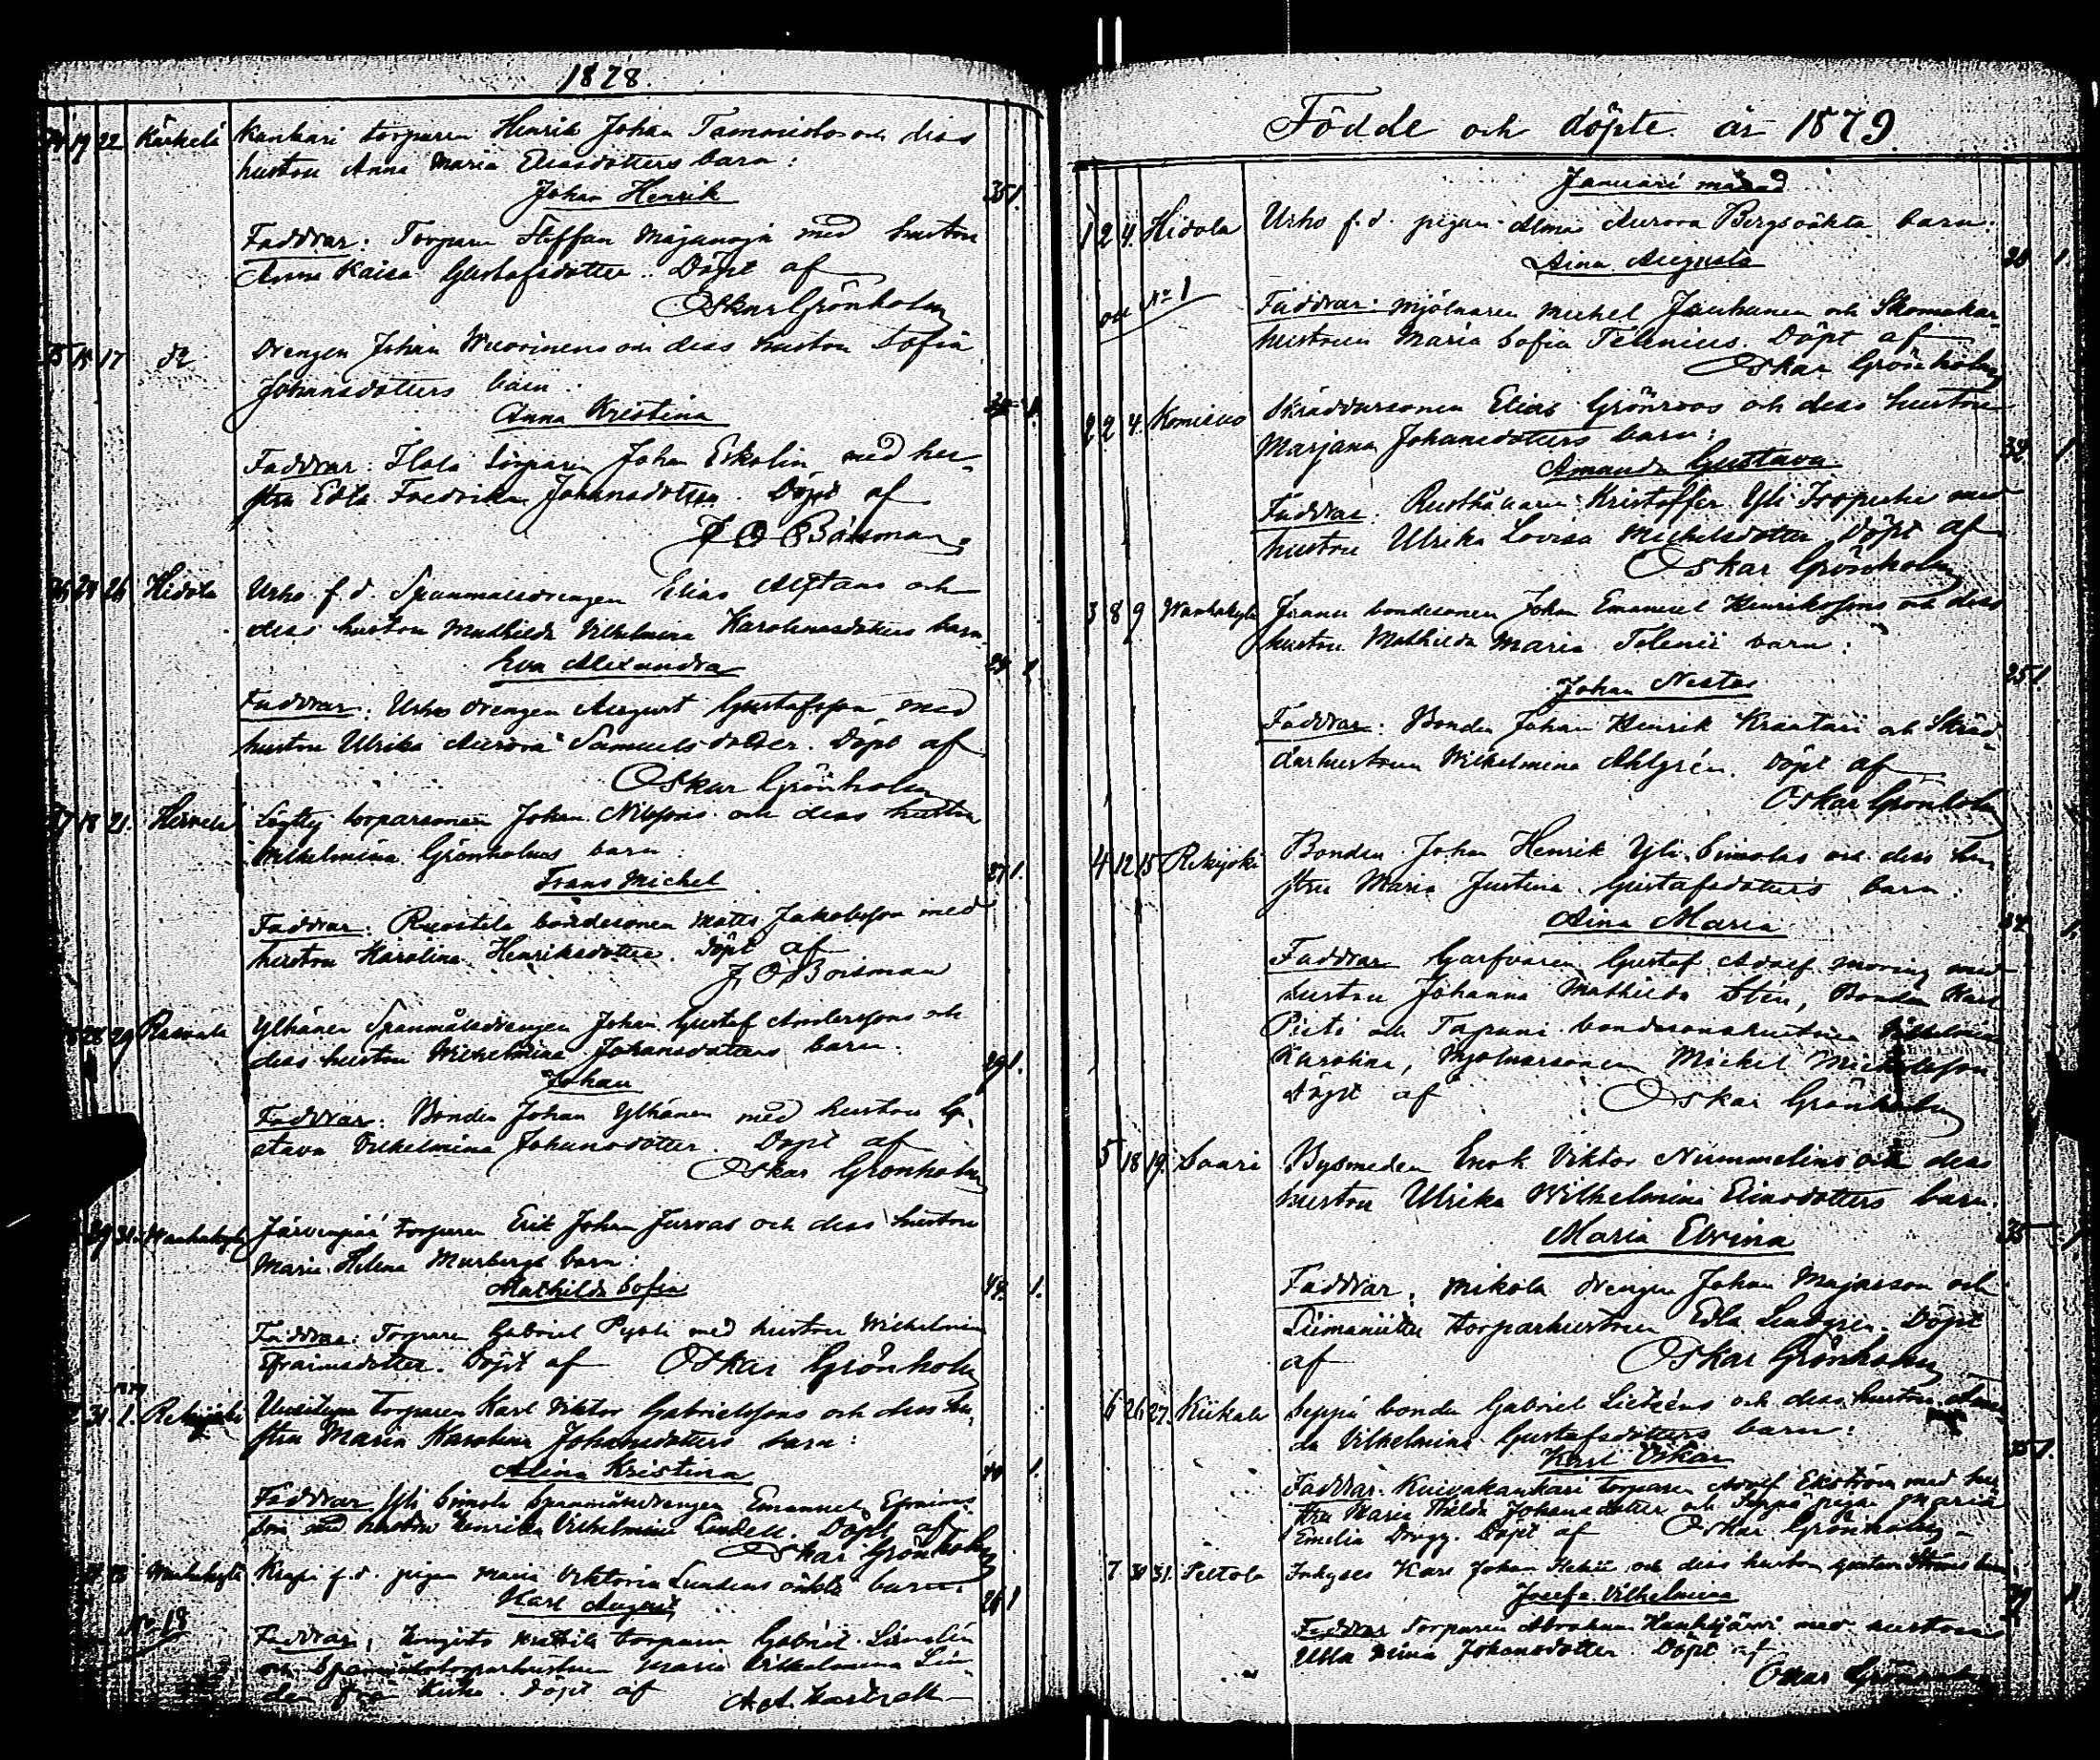 1878.
19 22 Kärkelä Kankari torparen Henrik Johan Tammistos och dess
hustru Anna Maria Eliasdotters barn:
Johan Henrik
35 1.
Faddrar: Torparen Steffan Majanoja med hustru
Anna Kaisa Gustafsdotter. Döpt af
Oskar Grönholm
15 17 Drengen Johan Wuorinens och dess hustru Sofia
Johansdotters barn:
Anna Kristina
Faddrar: Isola torparen Johan Eskolin med hu-
stru Edla Fredrika Johansdotter. Döpt af
J O Boisman.
26 Hidola Urho f.d. Spanmålsdrengen Elias Alftans och
dess hustru Mathilda Vilhelmina Karolinasdotters barn
Eva Alexandra
Faddrar: Urho drengen August Gustafsson med
hustru Ulrika Aurora Samuelsdotter. Döpt af
Oskar Grönholm
18 21. torparsonen Johan Nilssons och dess hustru
Wilhelmina Grönholms barn:
Frans Michel
27 1.
Faddrar: Ruostela bondesonen Matts Jakobsson med
hustru Karolina Henriksdotter. Döpt af
J, O, Boisman
28 29 Rasvala Ylhänen Spanmålsdrengen Johan Gustaf Anderssons och
dess hustru Wilhelmina Johansdotters barn.
Johan
29 1.
Faddrar: Bonden Johan Ylhänen med hustru Gu-
stava Vilhelmina Johansdotter. Döpt af
Oskar Grönholm
29 31 Wanhakylä Järvenpää torparen Erik Johan Jurvas och dess hustru
Maria Helena Murbergs barn:
Mathilda Sofia
44. 1.
Faddrar: Torparen Gabriel Pyöli med hustru Wilhelmina
Efraimsdotter. Döpt af Oskar Grönholm
31 1. Rekijoki Uusitupa torparen Karl Viktor Gabrielssons och dess hu-
stru Maria Karolina Johansdotters barn:
Alina Kristina
1.
Faddrar Yli Simola Spanmålsdrengen Emanuel Efraims-
son med hustru Henrika Vilhelmina Lindell. Döpt af
Oskar Grönholm
Wanhakylä Krapi f.d. pigan Maria Viktoria Lundens oäkta barn:
Karl August
26 1
No 18
Faddrar: torparen Gabriel
och Spanmålstorparhustrun Maria Vilhelmina Lin-
den från Kisko. Döpt af
Födde och döpte år 1879.
Januari månad
1 2 4. Hidola Urho f.d. pigan Alma Aurora Bergs oäkta barn:
Aina Augusta
1.
oä No 1
Faddrar: Mjölnaren Michel Jauhanen och Skomakar-
hustrun Maria Sofia Telenius. Döpt af
Oskar Grönholm
2 2 4. Komisuo Skräddarsonen Elias Grönroos och dess hustru
Marjana Johansdotters barn:
Amanda Gustava
1
Faddrar: Rusthållaren Kristoffer Yli Isopeelin med
hustru Ulrika Lovisa Michelsdotter Döpt af
Oskar Grönholm
3 8 9 Wanhakylä bondesonen Johan Emanuel Henrikssons och dess
hustru Mathilda Maria Tolenii barn:
Johan Nestor
25 1.
Faddrar: Bonden Johan Henrik Krantari och Skräd-
darhustrun Wilhelmina Ahlgrén. Döpt af
Oskar Grönholm
4 12 15 Rekijoki Bonden Johan Henrik Yli-Simolas och dess hu-
stru Maria Justina Gustafsdotters barn:
Aina Maria
1.
Faddrar Garfvaren Gustaf Adolf Moring med
hustru Johanna Mathilda Stén, Bonden Karl
och Tapani bondesonshustrun Vilhelmina
Karolina, Mjölnarsonen Michel Michelsson.
Döpt af Oskar Grönholm
5 18 19. Saari Bysmeden Enok Viktor Nummelins och dess
hustru Ulrika Wilhelmina Eliasdotters barn.
Maria Elvina
35 1
Faddrar: Mikola drengen Johan Majasson och
Liimaniitun torparhustrun Edla Lindgren. Döpt
af Oskar Grönholm
6 26 27. Kiikala Seppä bonden Gabriel Lietzéns och dess hustru Aman-
da Vilhelmina Gustafsdotters barn:
Karl Oskar
35 1.
Faddrar: Kuivakankari torparen Adolf Ekström med hu-
stru Maria Johansdotter och Seppä pigan Maria
Emelia Drugg. Döpt af Oskar Grönholm
7 31. Peltola Inhyses Karl Johan och dess hustru Gustava barn
Josefa Vilhelmina
Faddrar Torparen Abraham Hanhijärvi med hustru
Ulla Johansdotter. Döpt af
Oskar Grönholm